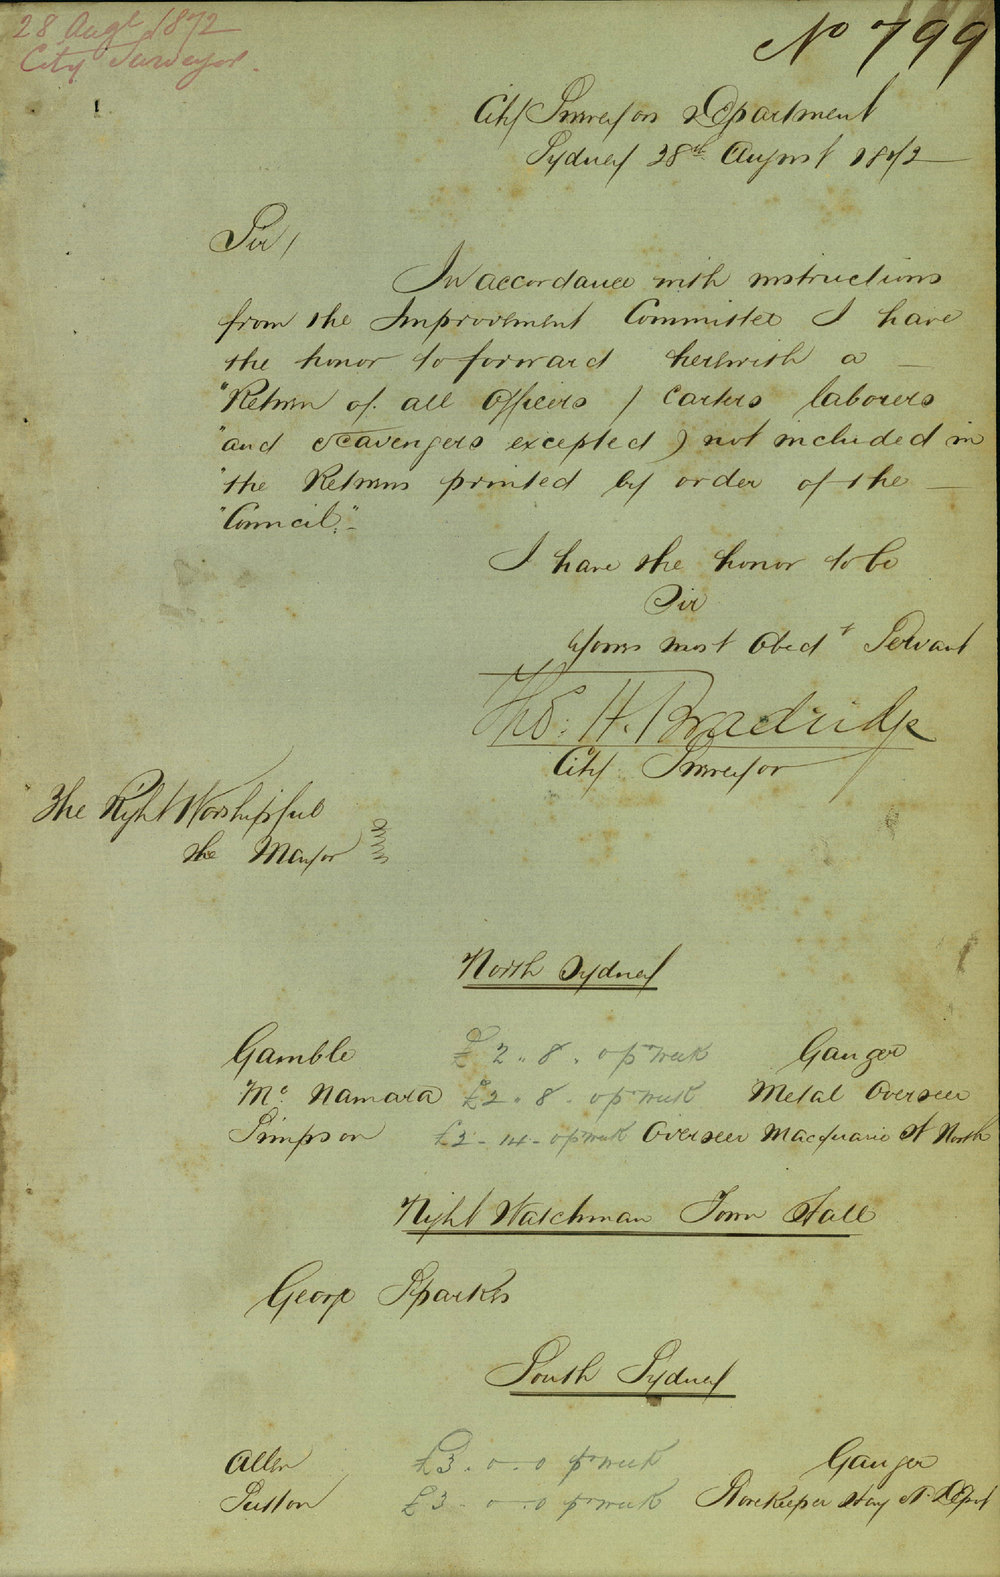 28 Augt 1872
City Surveyor.
No 799
City Surveyors Department
Sydney 28th August 1872
Sir/
In accordance with instructions
from the Improvement Committee I have
the honor to forward herewith a
"Return of all Officers (Carters laborers
"and Scavengers excepted) not included in
"the Returns printed by order of the
"Council."
I have the honor to be
Sir
Yours most Obedt Servant
Thos. H. Bradridge
City Surveyor
The Right Worshipful
the Mayor
North Sydney
Gamble £2.8.0 pr week Ganger
Mc Namara £2.8.0 pr week Metal Overseer
Simpson £2-14-0 pr week Overseer Macquarie St North
Night Watchman Town Hall
George Sparkes
South Sydney
Allen £3.0.0 pr week Ganger
Sutton £3-0.0 pr week Storekeeper Hay St Depot